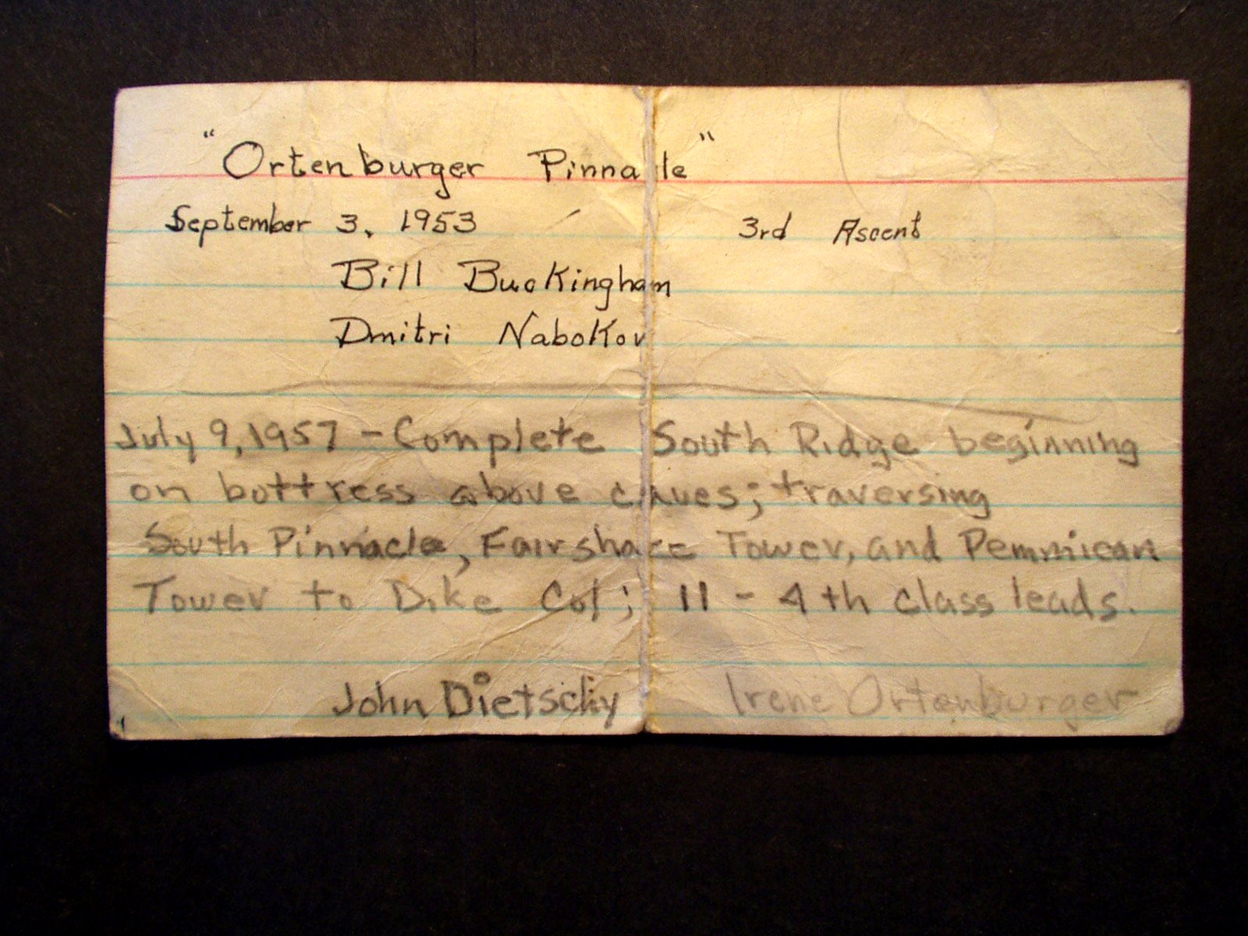 "Ortenburger Pinnacle"
September 3, 1953 3rd Ascent
Bill Buckingham
Dmitri Nabokov
July 9, 1957 - Complete South Ridge beginning
on buttress above caves; traversing
South Pinnacle, Fairshare Tower, and Pemmican
Tower to Dike Col; 11 - 4th class leads.
John Dietschy Irene Ortenburger